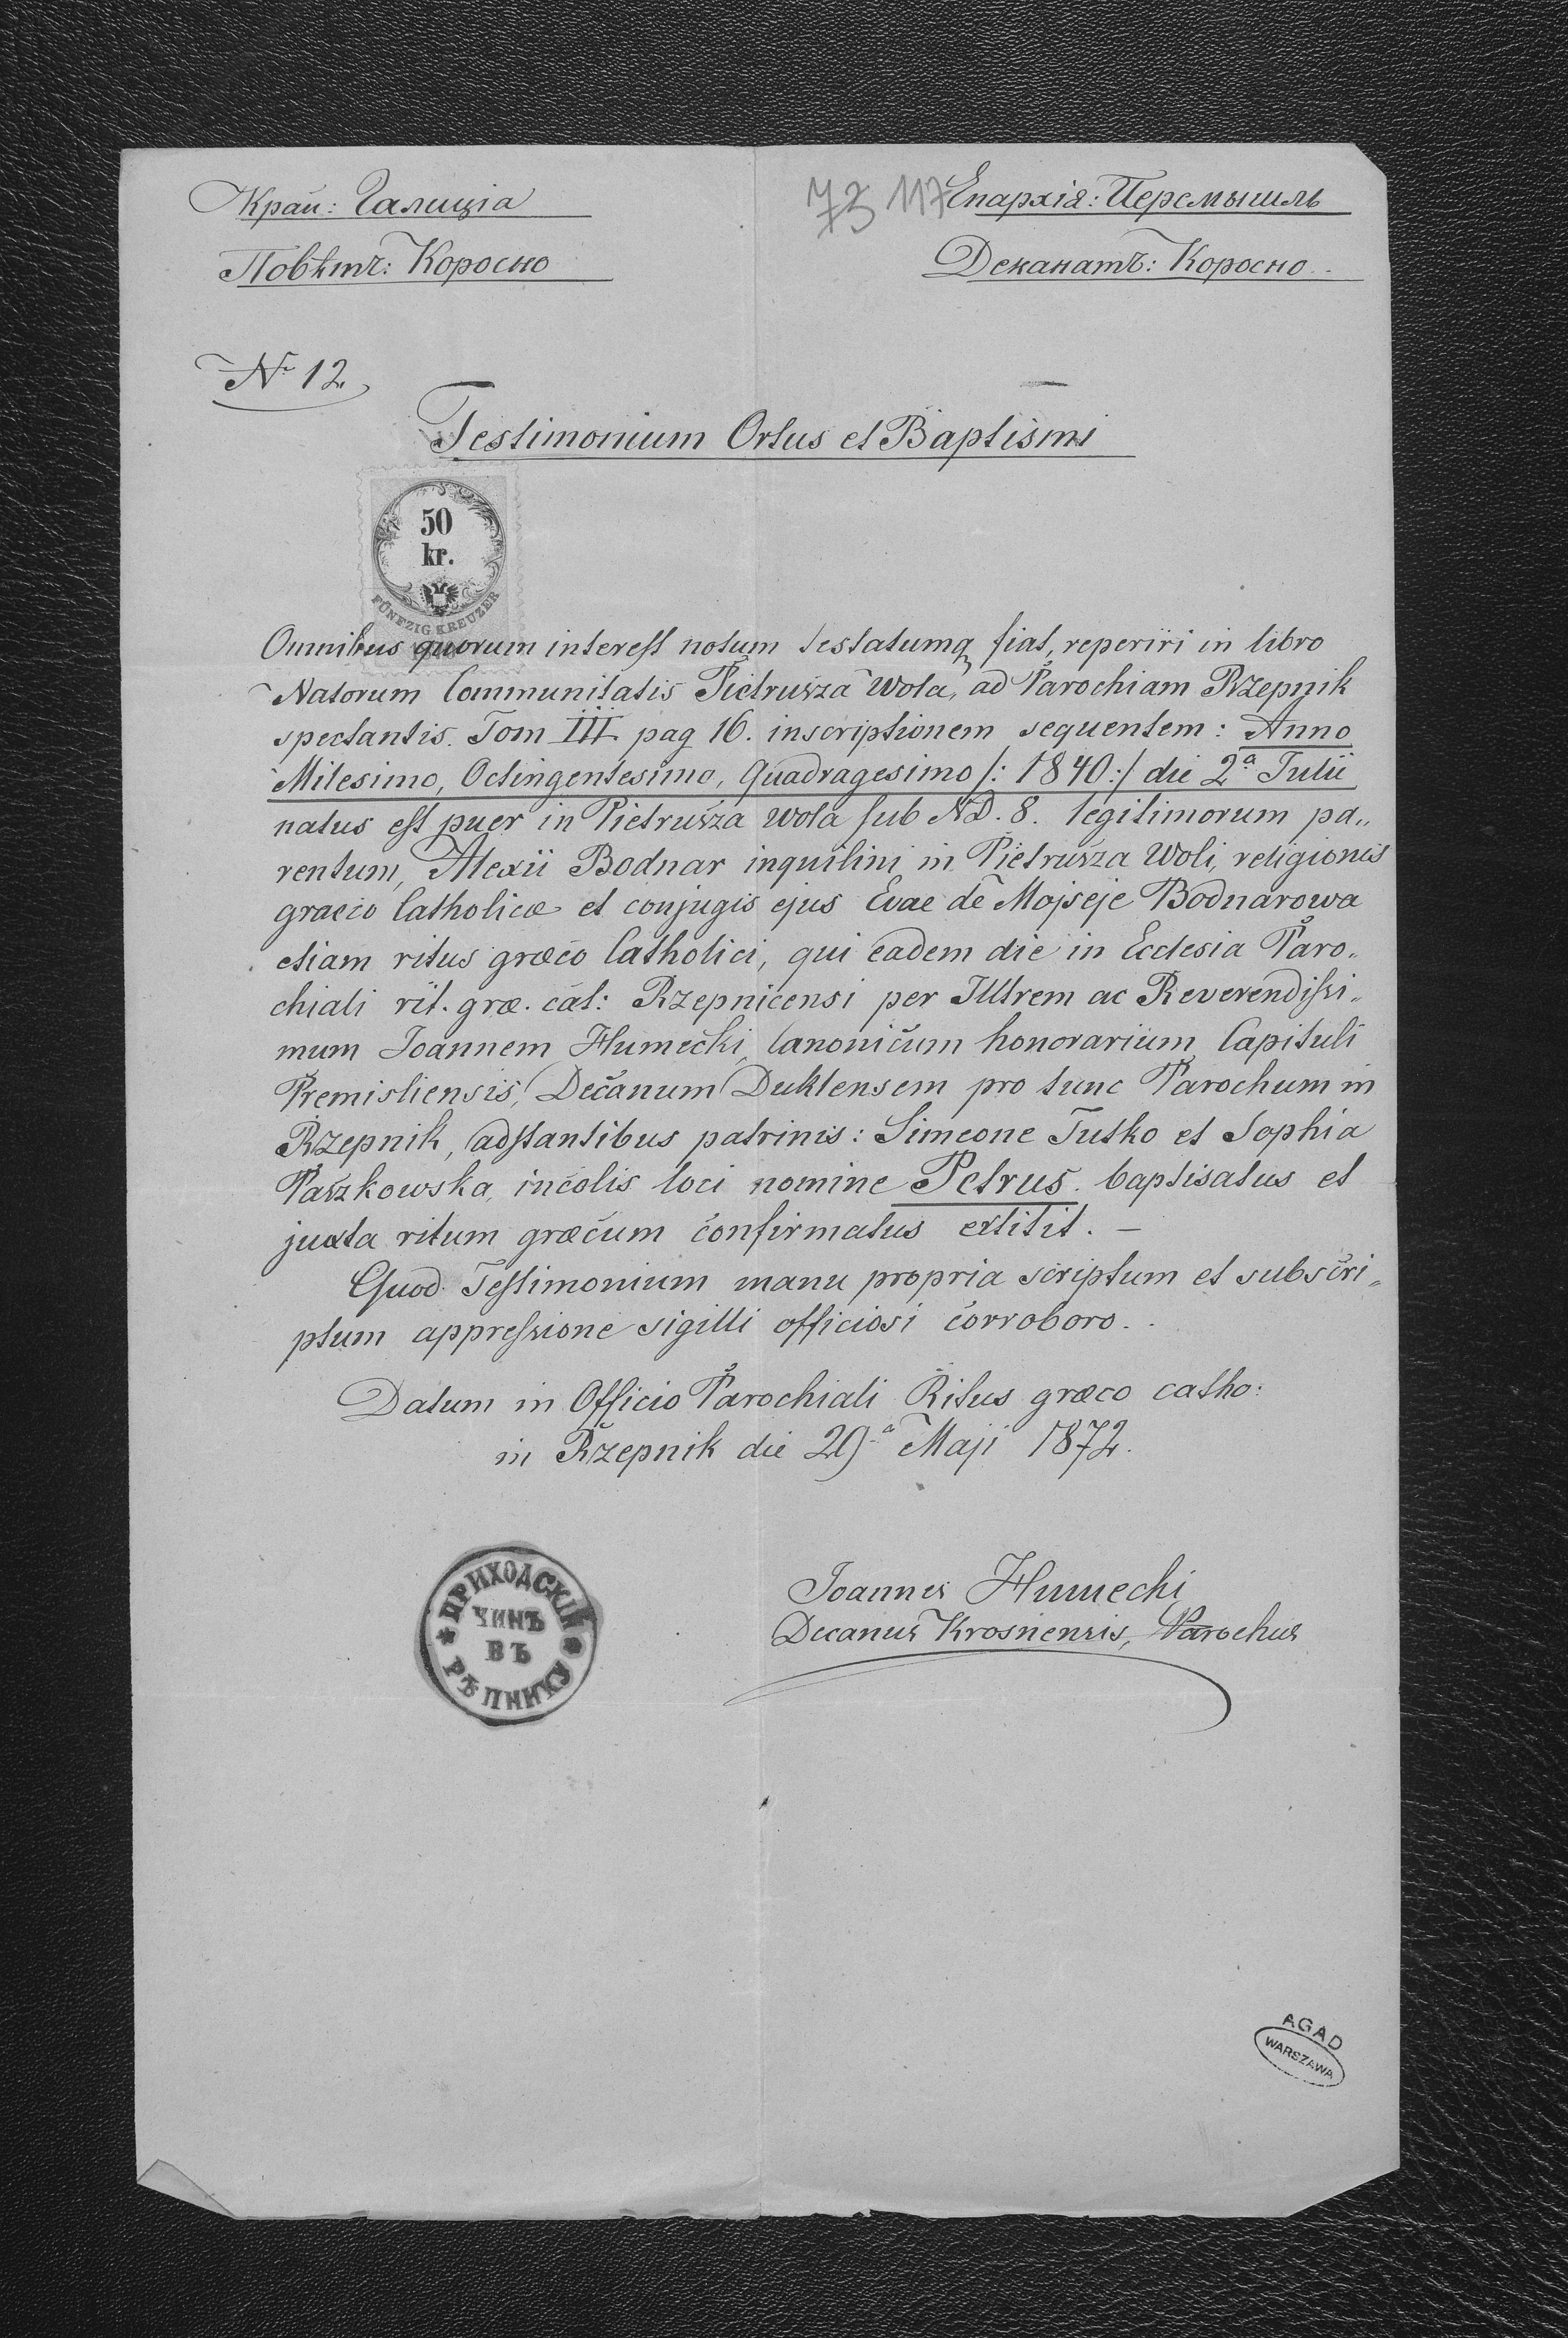 Край: Галиція
73 117 Епархія: Перемышль
Повѣтъ: Коросно
Деканатъ: Коросно
No 12
Testimonium Ortus et Baptismi
50
kr.
FÜNFZIG KREUZER
Omnibus quorum interest notum testatumq fiat, reperiri in libro
Natorum Communitatis Pietrusza Wola, ad Parochiam Rzepnik
spectantis. Tom III pag 16. inscriptionem sequentem: Anno
Milesimo, Octingentesimo, Quadragesimo /: 1840 :/ die 2a Julii
natus est puer in Pietrusza wola sub ND. 8. legitimorum pa„
rentum, Alexii Bodnar inquilini in Pietrusza Woli, religionis
graeco Catholicæ et conjugis ejus Evae de Mojseje Bodnarowa
etiam ritus græco Catholici, qui eadem die in Ecclesia Paro„
chiali rit. græ. cat: Rzepnicensi per Illtrem ac Reverendissi„
mum Joannem Humecki, Canonicum honorarium Capituli
Premisliensis, Decanum Duklensem pro tunc Parochum in
Rzepnik, adstantibus patrinis: Simeone Tutko et Sophia
Paszkowska, incolis loci nomine Petrus. baptisatus et
juxta ritum græcum confirmatus extitit. –
Quod Testimonium manu propria scriptum et subscri„
ptum appressione sigilli officiosi corroboro. .
Datum in Officio Parochiali Ritus græco catho:
in Rzepnik die 29a Maji 1872.
Joannes Humecki
Decanus Krosnensis, Parochus
ПРИХОДСКІЙ
ЧИНЪ
ВЪ
РѢПНИКУ
AGAD
WARSZAWA